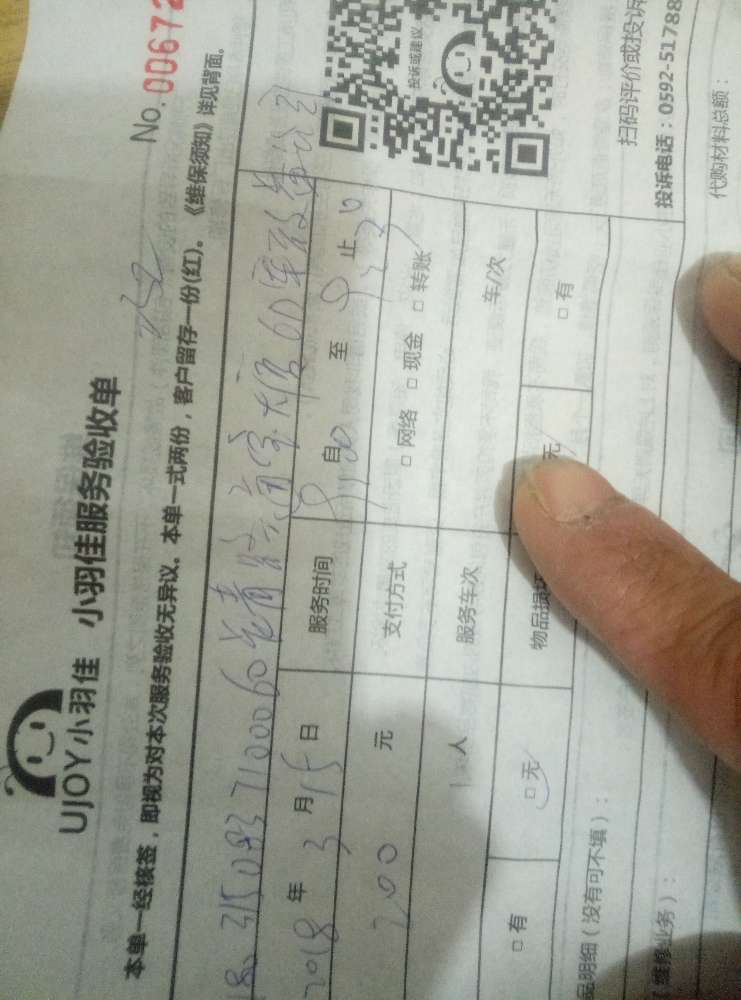 UJOY小羽佳 小羽佳服务验收单
No.00672
本单一经核签，即视为对本次服务验收无异议。本单一式两份，客户留存一份(红)。《维保须知》详见背面。
投诉或建议
2018年3月15日 服务时间 自 至 止
200元 支付方式 □网络 □现金 □转账
人 服务车次 车/次
□有 □无 物品损 无 □有
扫码评价或投诉
品明细（没有可不填）：
投诉电话：0592-51788
维修业务）：
代购材料总额：